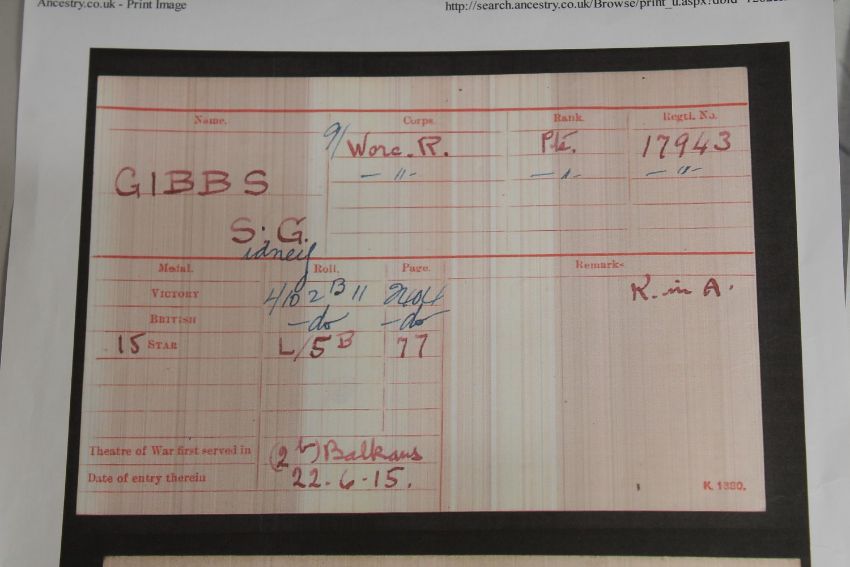 Ancestry.co.uk - Print Image
http://search.ancestry.co.uk/Browse/print_u.aspx?dbid
Name. Corps. Rank. Regtl. No.
9/ Worc. R. Pte. 17943
GIBBS —"— —"— —"—
S. G.
idney
Medal. Roll. Page. Remarks
VICTORY 4/102 B 11
K. in A.
BRITISH —do —do
15 STAR L/5 B 77
Theatre of War first served in (2b) Balkans
Date of entry therein 22-6-15.
K. 1380.